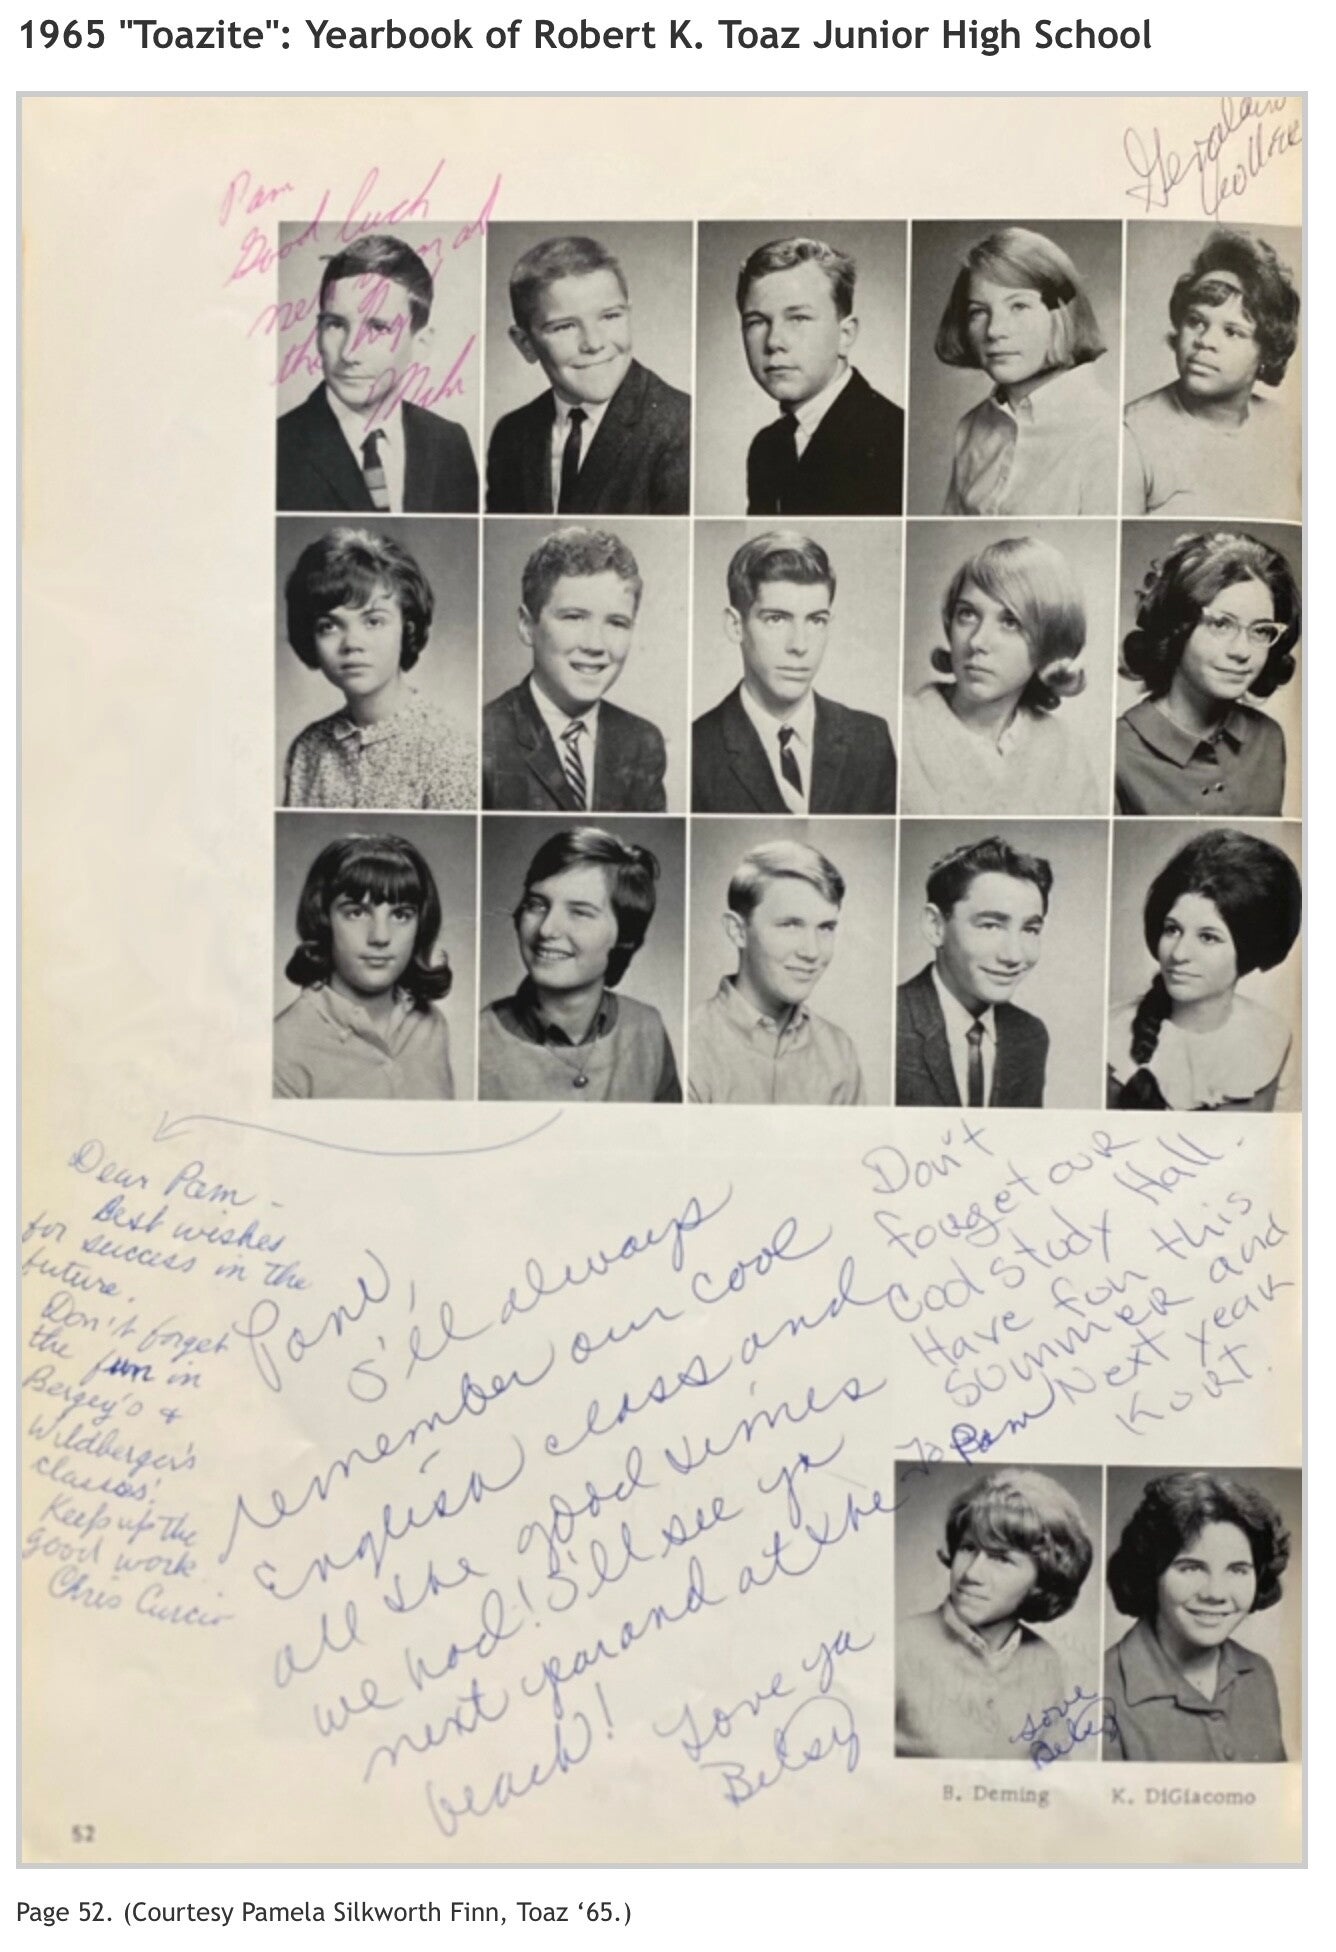 1965 "Toazite": Yearbook of Robert K. Toaz Junior High School
Pam
Good luck
the
Dear Pam -
Best wishes
for success in the
future.
Don't forget
the fun in
Bergey's &
Wildberger's
classes!
Keep up the
good work
Chris Curcio
Pam,
I'll always
remember our cool
English class and
all the good times
we had! I'll see ya
next year and at the
beach!
Love ya
Betsy
Don't
forget our
Cool Study Hall.
Have fun this
summer and
Next year
Kurt.
To Pam
Love
Betsy
B. Deming K. DiGiacomo
52
Page 52. (Courtesy Pamela Silkworth Finn, Toaz ‘65.)